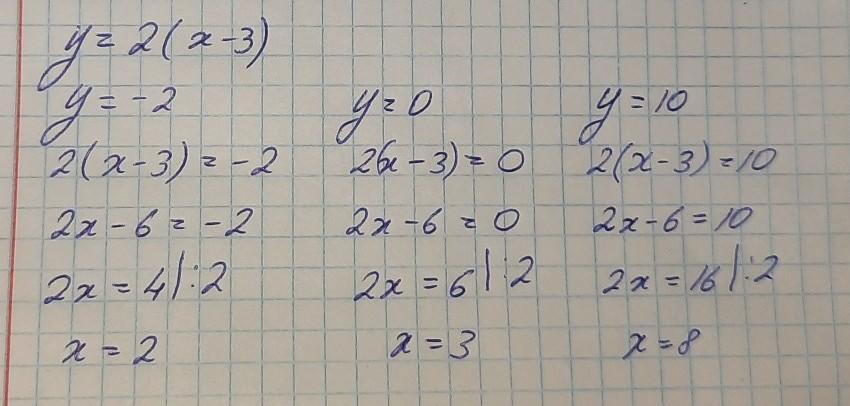 y = 2(x-3)
y = -2 y = 0 y = 10
2(x-3) = -2 2(x-3) = 0 2(x-3) = 10
2x-6 = -2 2x-6 = 0 2x-6 = 10
2x = 4 |:2 2x = 6 |:2 2x = 16 |:2
x = 2 x = 3 x = 8